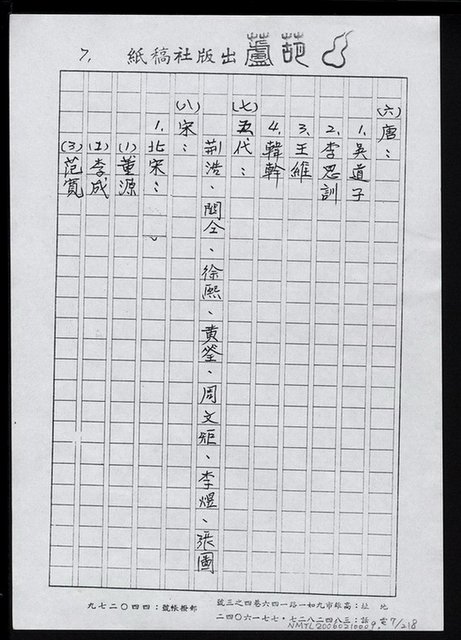 7.
葫蘆出版社稿紙
(六)唐：
1.吳道子
2.李思訓
3.王維
4.韓幹
(七)五代：
荊浩、關仝、徐熙、黃筌、周文矩、李煜、張圖
(八)宋：
1.北宋：
(1)董源
(2)李成
(3)范寬
地址：高雄市九如一路一四六巷四之三號
郵撥帳號：四四〇二七九
NMTL20060210009